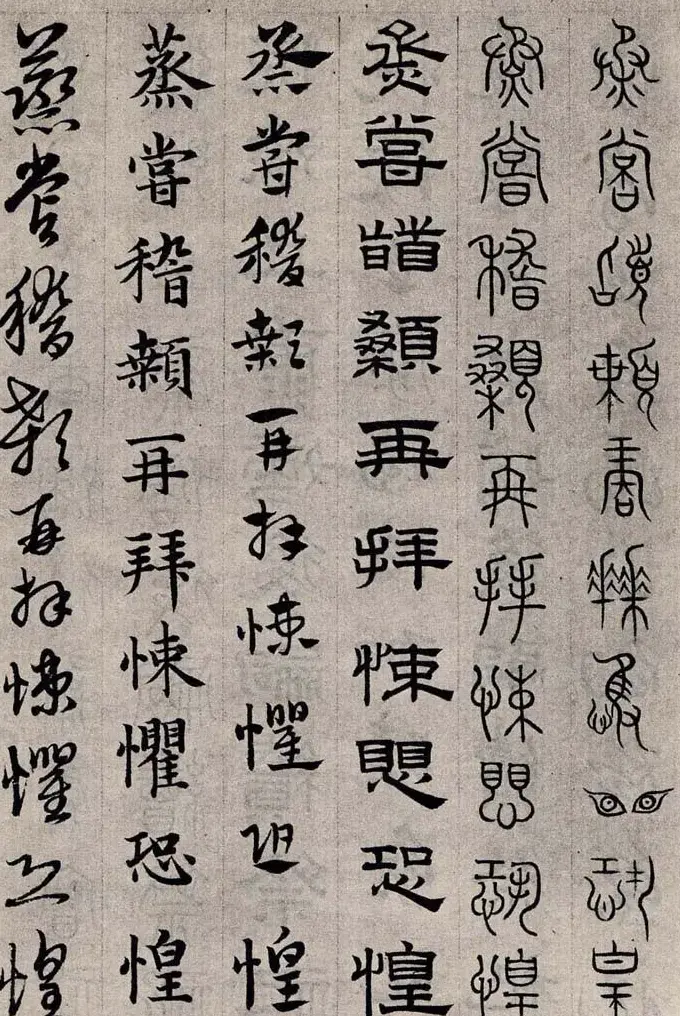 烝嘗稽顙再拜悚懼恐皇
烝嘗稽顙再拜悚愳恐惶
烝嘗稽顙再拜悚愳恐惶
烝嘗稽顙再拜悚懼恐惶
蒸嘗稽顙再拜悚懼恐惶
蒸嘗稽顙再拜悚懼恐惶